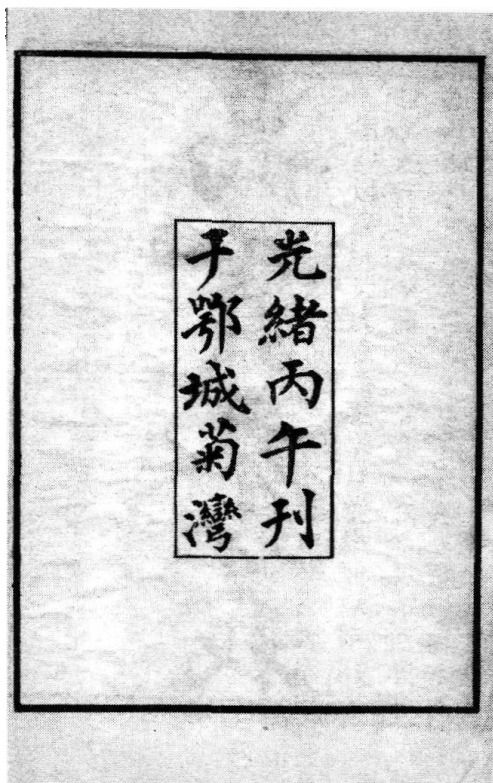 光緒丙午刊
于鄂城菊灣